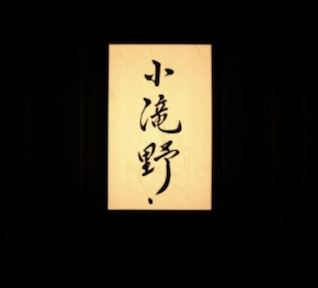 小滝野